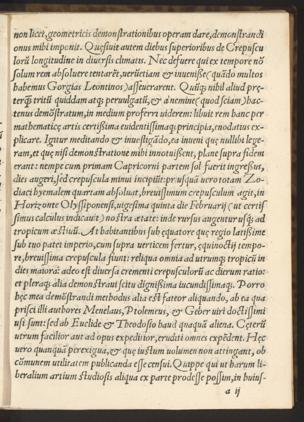 non licet, geometricis demonstrationibus operam dare, demonstrandi
onus mihi imponit. Quæsiuit autem diebus superioribus de Crepuscu
lorū longitudine in diuersis climatis. Nec defuere qui ex tempore nō
solum rem absoluere tentarēt, uerū etiam & inuenisse (quādo multos
habemus Gorgias Leontinos) asseuerarent. Quūq; nihil aliud præ-
terq̃ tritū quiddam atq; peruulgatū, & à nemine (quod sciam) hac-
tenus demōstratum, in medium proferri uiderem: libuit rem hanc per
mathematicę artis certissima euidentissimaq; principia, enodatius ex-
plicare. Igitur meditando & inuestigādo, ea inueni quę nullibi lege-
ram, et quę nisi demonstratione mihi innotuissent, plane supra fidem
erant: nempe cum primam Capricorni partem sol fuerit ingressus,
dies augeri, sed crepuscula minui incipiūt: rursusq; uero totam Zo-
diaci hyemalem quartam absoluat, breuissimum crepusculum agit, in
Horizonte Olyssiponensi, uigesima quinta die Februarij (ut certis
simus calculus indicauit) nostra ætate: inde rursus augentur usq; ad
tropicum æstiuū. At habitantibus sub æquatore quę regio latissime
sub tuo patet imperio, cum supra uerticem fertur, ęquinoctij tempo-
re, breuissima crepuscula fiunt: reliqua omnia ad utrumq; tropicū in
dies maiora: adeo est diuersa crementi crepusculorū ac dierum ratio:
et pleraq; alia demonstraui scitu dignissima iucundissimaq;. Porro
hęc mea demonstrandi methodus alia est fateor aliquando, ab ea qua
prisci illi authores Menelaus, Ptolemeus, & Geber uiri doctissimi
usi sunt: sed ab Euclide & Theodosio haud quaquã aliena. Cęterū
utrum facilior aut ad opus expeditior, eruditi omnes expēdēt. Hęc
uero quanquā perexigua, & quę iustum uolumen non attingant, ob
cōmunem utilitatem publicanda esse censui. Quippe qui ut harum li-
beralium artium studiosis aliqua ex parte prodesse possim, in huius-
a ij